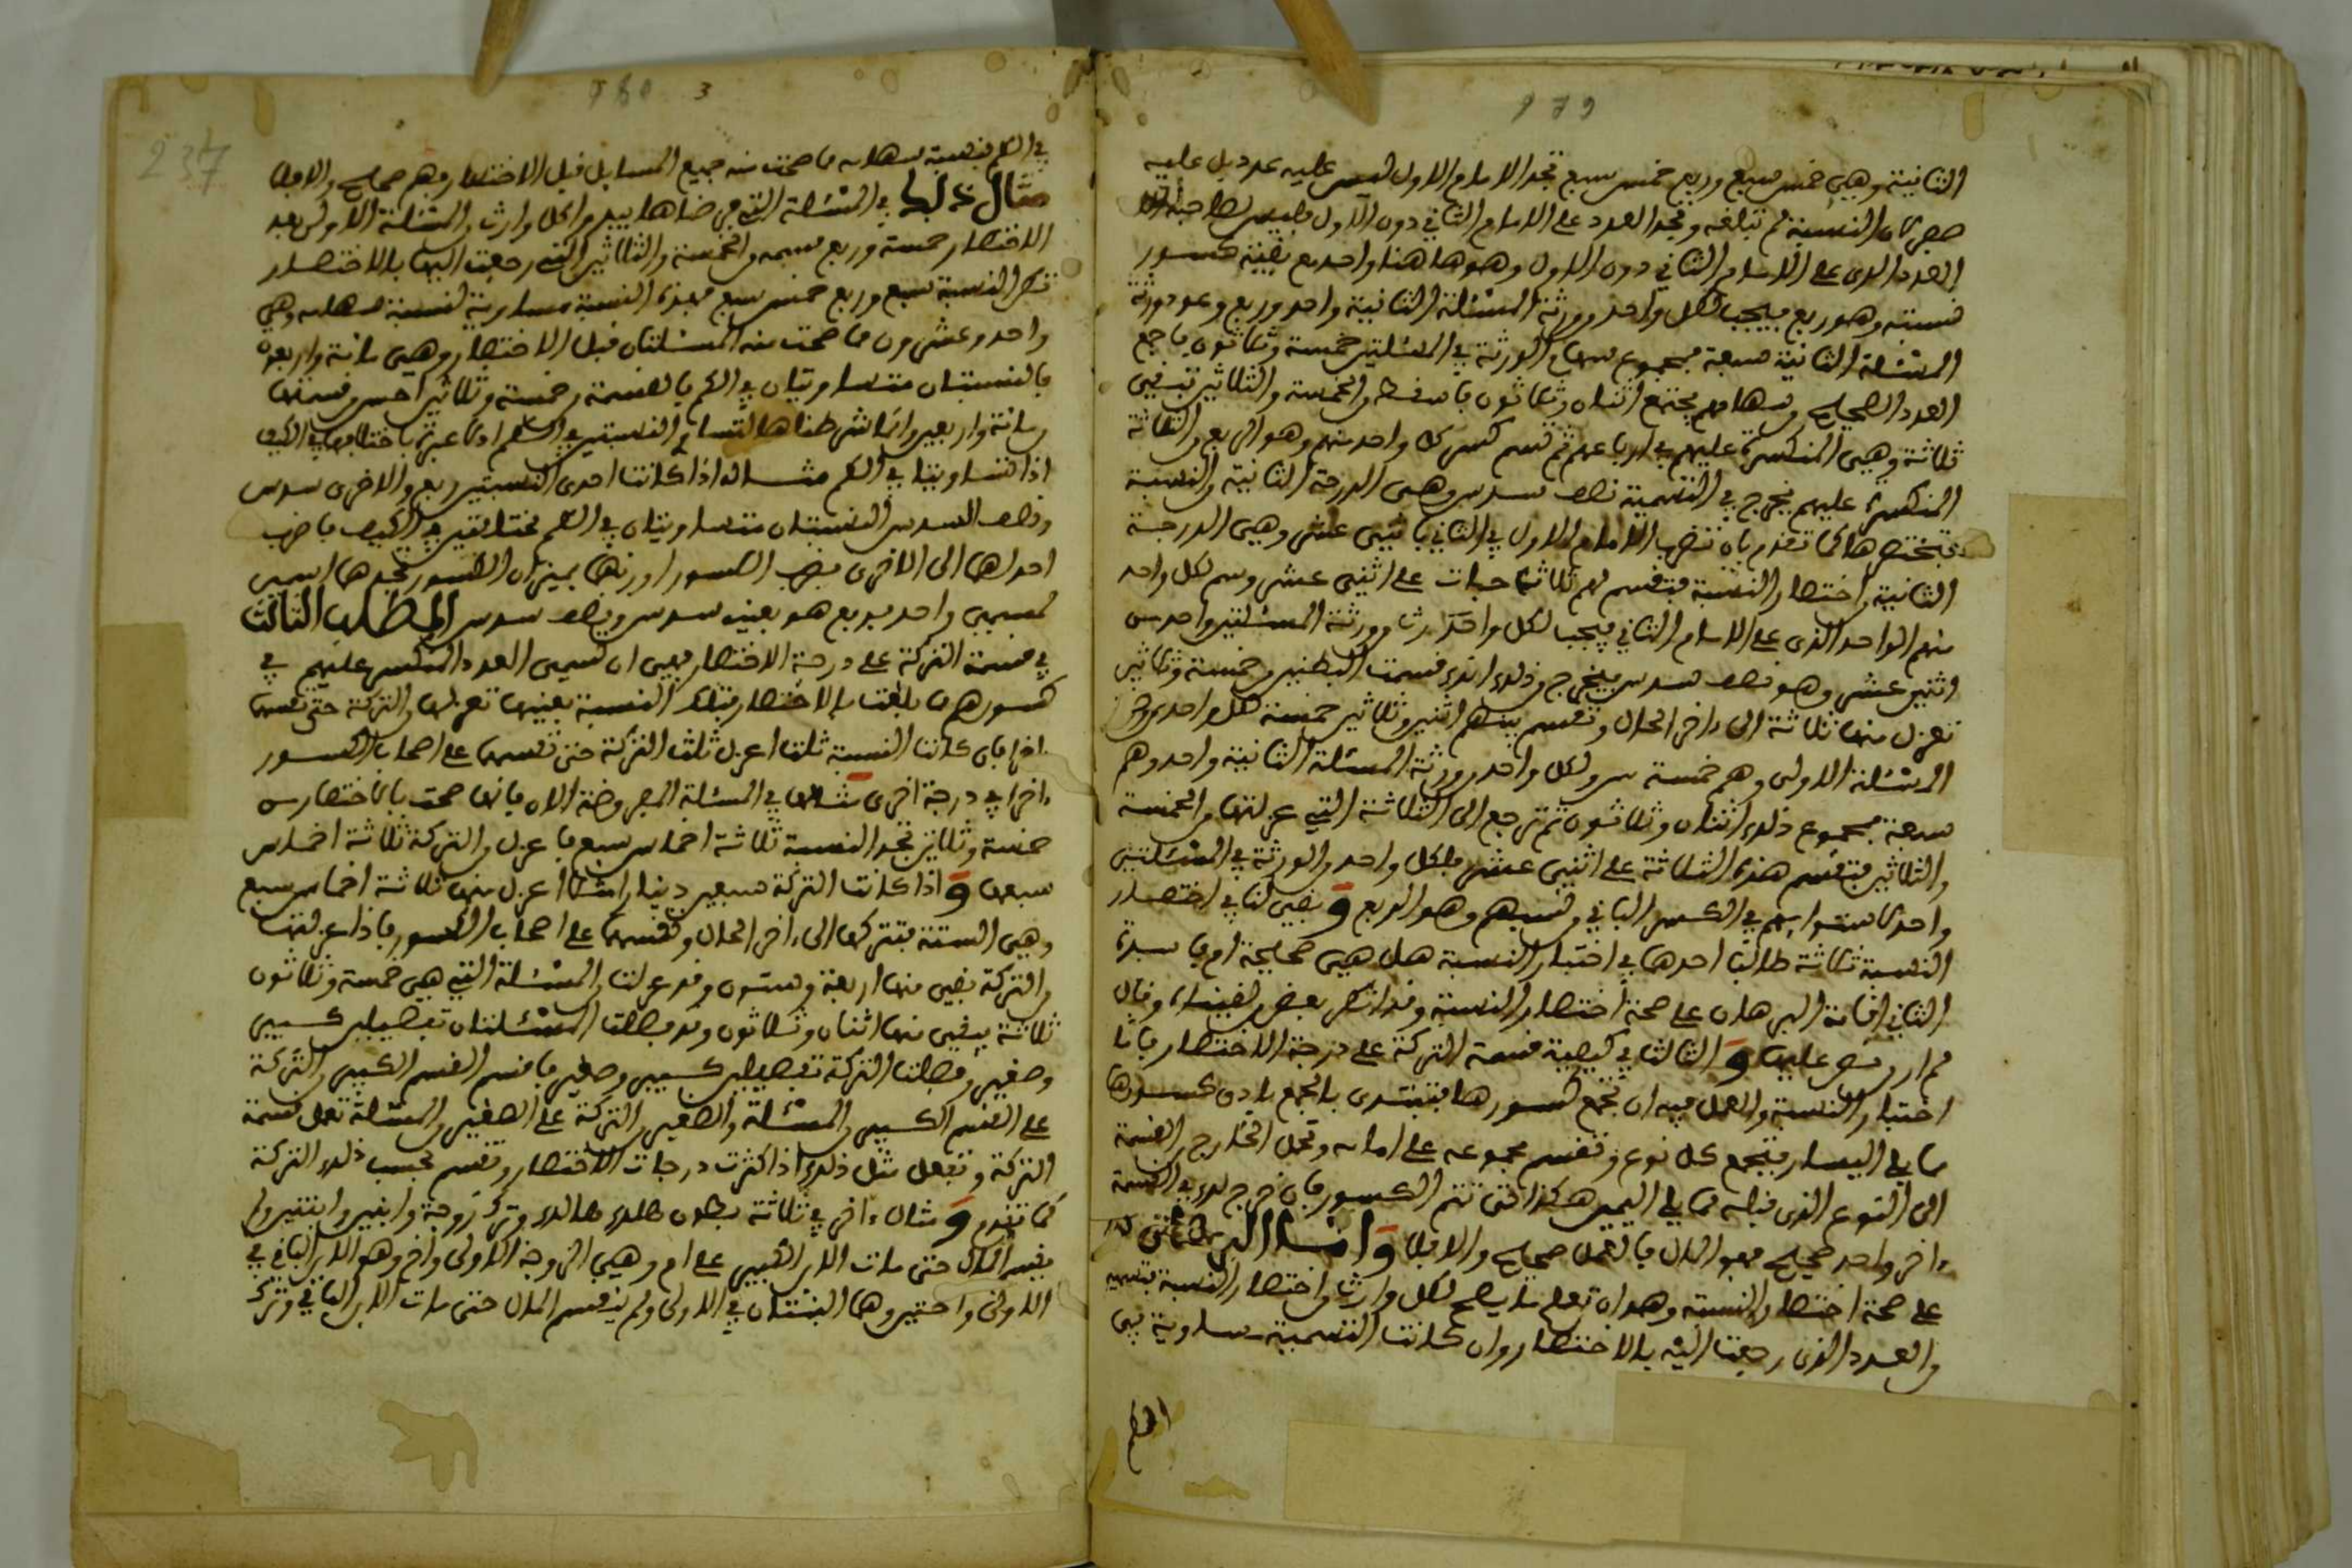 179
الثانية وهي خمس سبع وربع خمس سبع تجد الامام الاول ليس عليه عدد بل عليه
صفر كان النسبة لم تبلغه وتجد العدد على الامام الثاني دون الاول فليس لصاحبة
العدد الذي على الامام الثاني دون الاول وهو هاهنا واحد مع بقية كسور
نسبته وهو ربع فيجب لكل واحد من ورثة المسئلة الثانية واحد وربع وعدد ورثة
المسئلة الثانية سبعة فمجموع سهام الورثة في المسئلتين خمسة وثلاثون فاجمع
العدد الصحيح من سهامهم يجتمع اثنان وثلاثون فاسقطه من الخمسة والثلاثين تبقى
ثلاثة وهي المنكسرة عليهم في ارباعهم ثم تسم كسر كل واحد منهم وهو الربع من الثلاثة
المنكسرة عليهم يخرج في التسمية نصف سدس وهي الدرجة الثانية من النسبة
فتختصرها كما تقدم بان تضرب الامام الاول في الثاني باثني عشر وهي الدرجة
الثانية من اختصار النسبة فتقسم لهم ثلاثة حبات على اثني عشر وسم لكل واحد
منهم الواحد الذي على الامام الثاني فيجب لكل واحد وارث من ورثة المسئلتين واحد من
اثني عشر وهو نصف سدس فيخرج من ذلك انك قسمت البطنين من خمسة وثلاثين
تعزل منها ثلاثة الى ءاخر الحال وتقسم بينهم اثنين وثلاثين خمسة لكل واحد من ورثة
المسئلة الاولى وهم خمسة ولكل واحد من ورثة المسئلة الثانية واحد وهم
سبعة فمجموع ذلك اثنان وثلاثون ثم ترجع الى الثلاثة التي عزلتها من الخمسة
والثلاثين فتقسم هذه الثلاثة على اثني عشر فلكل واحد من الورثة في المسئلتين
واحد لاستوائهم في الكسر الباقي من قسمهم وهو الربع وَبقي لنا في اختصار
النسبة ثلاثة مطالب احدها في اختبار النسبة هل هي صحيحة ام فاسدة
الثاني اقامة البرهان على صحة اختصار النسبة وقد انكره بعض من لقيناه وقال
لم ار من نص عليها وَالثالث في كيفية قسمة التركة على درجة الاختصار فاما
اختبار النسبة والعمل فيه ان تجمع كسورها فتبتدي بالجمع بادى كسورها
مما يلي اليسار فتجمع كل نوع وتقسم مجموعه على امامه وتحمل الخارج من القسمة
الى النوع الذي قبله مما يلي اليمين هكذا حتى تتم الكسور فان خرج لك في القسمة
ءاخر واحد صحيح فهو المال فالعمل صحيح والا فلا وَامــا البرهان
على صحة اختصار النسبة وهو ان تعلم ما يصح لكل وارث من اختصار النسبة فتسميه
من العدد الذي رجعت اليه بالاختصار وان كانت التسمية مساوية في
الكم
180 3
237
في الكم لنسبة سهامه مما صحت منه جميع المسايل قبل الاختصار فهو صحيح والا فلا
مثال ذلك في المسئلة التي فرضناها بيد كل وارث من المسئلة الاولى بعد
الاختصار خمسة وربع سهم من الخمسة والثلاثين التي رجعت اليها بالاختصار
تكن النسبة سبع وربع خمس سبع فهذه النسبة مساوية لنسبة سهامه وهي
واحد وعشرون مما صحت منه المسئلتان قبل الاختصار وهي مائة واربعون
فالنسبتان متساويتان في الكم فالقسمة من خمسة وثلاثين احسن من قسمتها
من مائة واربعين وانما شرطنا هنا تساوي النسبتين في الكم اذ لا عبرة باختلافهما في الكيف
اذا تساويتا في الكم مثــاله اذا كانت احدى النسبتين ربع والاخرى سدس
ونصف السدس فالنسبتان متساويتان في الكم مختلفتين في الكيف فاضرب
احداهما الى الاخرى بضرب الكسور او زنهما بميزان الكسور تجدهما
كسر واحد فربع هو بعينه سدس ونصف سدس المطلب الثالث
في قسمة التركة على درجة الاختصار فهي ان تسمي العدد المنكسر عليهم في
كسورهم مما بلغت بالاختصار فتلك النسبة بعينها تعزلها من التركة حتى تقسمها
ءاخرا فان كانت النسبة ثلثا اعزل ثلث التركة حتى تقسمها على اصحاب الكسور
ءاخرا في درجة اخرى مثالها في المسئلة المفروضة الان فانها صحت بالاختصار من
خمسة وثلاثين تجد النسبة ثلاثة اخماس سبع فاعزل من التركة ثلاثة اخماس
سبعها وَاذا كانت التركة سبعين دينارا مثلا اعزل منها ثلاثة اخماس سبع
وهي الستة فتتركها الى ءاخر الحال وتقسمها على اصحاب الكسور فاذا عزلتها
من التركة بقي منها اربعة وستون وقد عزلت من المسئلة التي هي خمسة وثلاثون
ثلاثة يبقى منها اثنان وثلاثون وقد فصلت المسئلتان تفصيلين كبير
وصغير وفصلت التركة تفصيلين كبير وصغير فاقسم القسم الكبير من التركة
على القسم الكبير من المسئلة والصغير من التركة على الصغير من المسئلة تعمل قسمة
التركة وتفعل مثل ذلك اذا كثرت درجات الاختصار وتقسم بحسب ذلك التركة
كما تقدم وَمثال ءاخر في ثلاثة بطون هلك هالك وترك زوجة وابنين وابنتين ولم
يقسم المال حتى مات الابن الكبير على ام وهي الزوجة الاولى واخ وهو الابن الباقي في
الاولى واختين وهما البنتان في الاولى ولم يقسم المال حتى مات الابن الباقي وترك